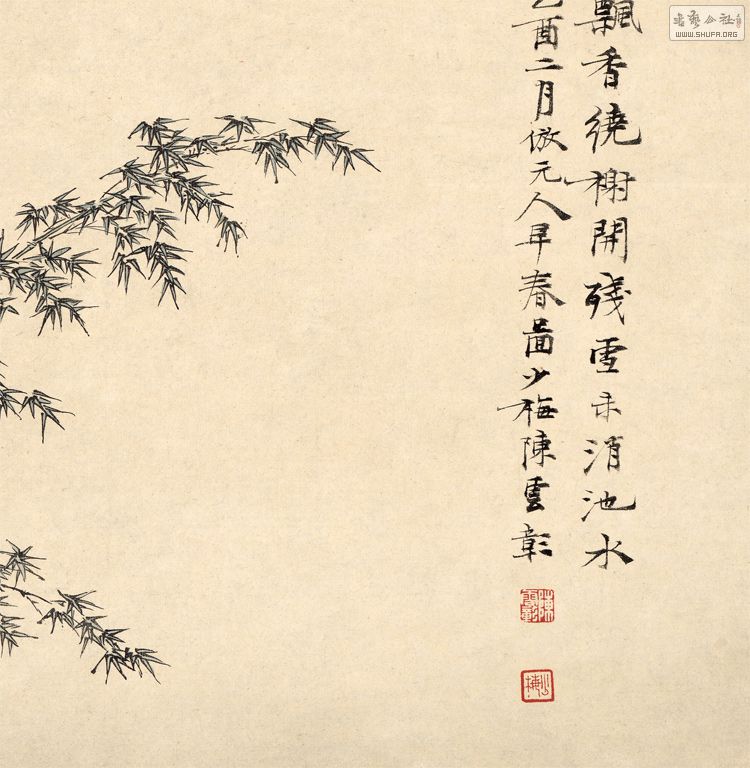 飄香繞榭開殘雪未消池水
乙酉二月倣元人早春啚少梅陳雲彰
陳雲彰
少梅
书艺公社
WWW.SHUFA.ORG